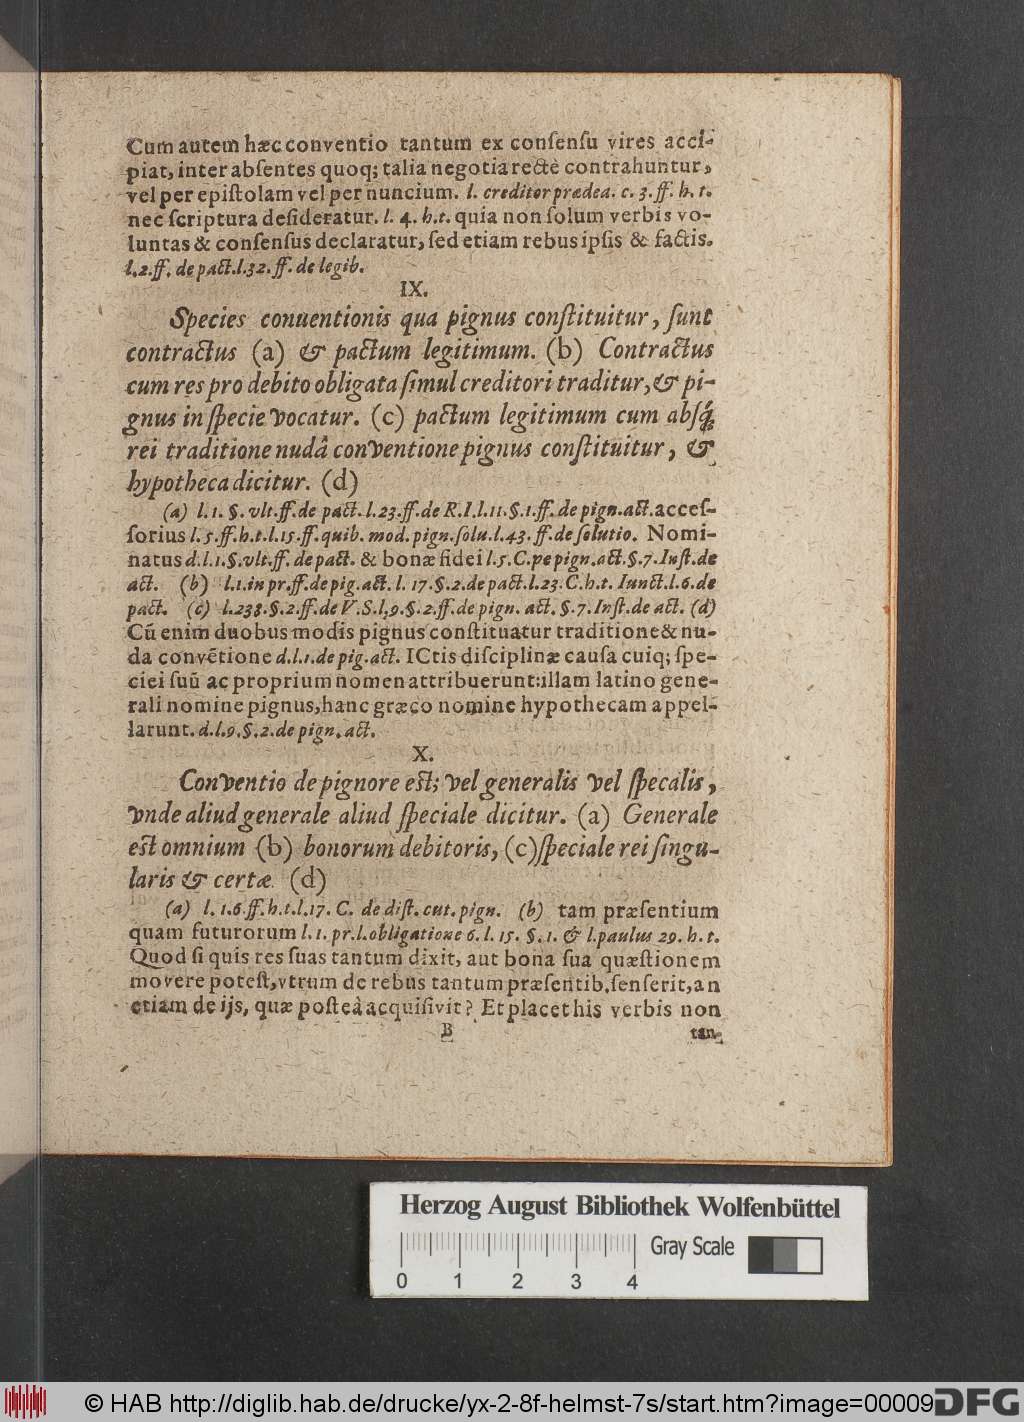 Cum autem hæc conventio tantum ex conſenſu vires acci-
piat, inter abſentes quoq; talia negotia rectè contrahuntur,
vel per epiſtolam vel per nuncium. l. creditor prædea. c. 3. ff. h. t.
nec ſcriptura deſideratur. l. 4. h.t. quia non ſolum verbis vo-
luntas & conſenſus declaratur, ſed etiam rebus ipſis & factis.
l.2.ff. de pact.l.32.ff. de legib.
IX.
Species conuentionis qua pignus conſtituitur, ſunt
contractus (a) & pactum legitimum. (b) Contractus
cum res pro debito obligata ſimul creditori traditur, & pi-
gnus in ſpecie vocatur. (c) pactum legitimum cum abſq́;
rei traditione nudâ conventione pignus conſtituitur, &
hypotheca dicitur. (d)
(a) l. 1. §. vlt.ff.de pact.l.23.ff.de R.I.l.11.§.1.ff.de pign.act.acceſ-
ſorius l.5.ff.h.t.l.15.ff.quib. mod. pign.ſolu.l.43.ff.de ſolutio. Nomi-
natus d.l.1.§.vlt.ff. de pact. & bonæ fidei l.5.C.pe pign.act.§.7.Inſt.de
act. (b) l.1.in pr.ff.de pig.act. l. 17.§.2.de pact.l.23.C.h.t. Iunct.l.6.de
pact. (c) l.238.§.2.ff.de V.S.l,9.§.2.ff.de pign. act. §.7.Inſt.de act. (d)
Cū enim duobus modis pignus conſtituatur traditione & nu-
da convētione d.l.1.de pig.act. ICtis diſciplinæ cauſa cuiq; ſpe-
ciei ſuū ac proprium nomen attribuerunt: illam latino gene-
rali nomine pignus, hanc græco nomine hypothecam appel-
larunt. d.l.9.§.2.de pign.act.
X.
Conventio de pignore est; vel generalis vel ſpecalis,
vnde aliud generale aliud ſpeciale dicitur. (a) Generale
est omnium (b) bonorum debitoris, (c) ſpeciale rei ſingu-
laris & certæ. (d)
(a) l. 1.6.ff.h.t.l.17. C. de diſt. cut. pign. (b) tam præſentium
quam futurorum l. 1. pr.l.obligatione 6. l. 15. §. 1. & l.paulus 29. h. t.
Quod ſi quis res ſuas tantum dixit, aut bona ſua quæſtionem
movere poteſt, vtrum de rebus tantum præſentib. ſenſerit, an
etiam de ijs, quæ poſteà acquiſivit? Et placet his verbis non
B
tan-
Herzog August Bibliothek Wolfenbüttel
Gray Scale
0 1 2 3 4
© HAB http://diglib.hab.de/drucke/yx-2-8f-helmst-7s/start.htm?image=00009
DFG